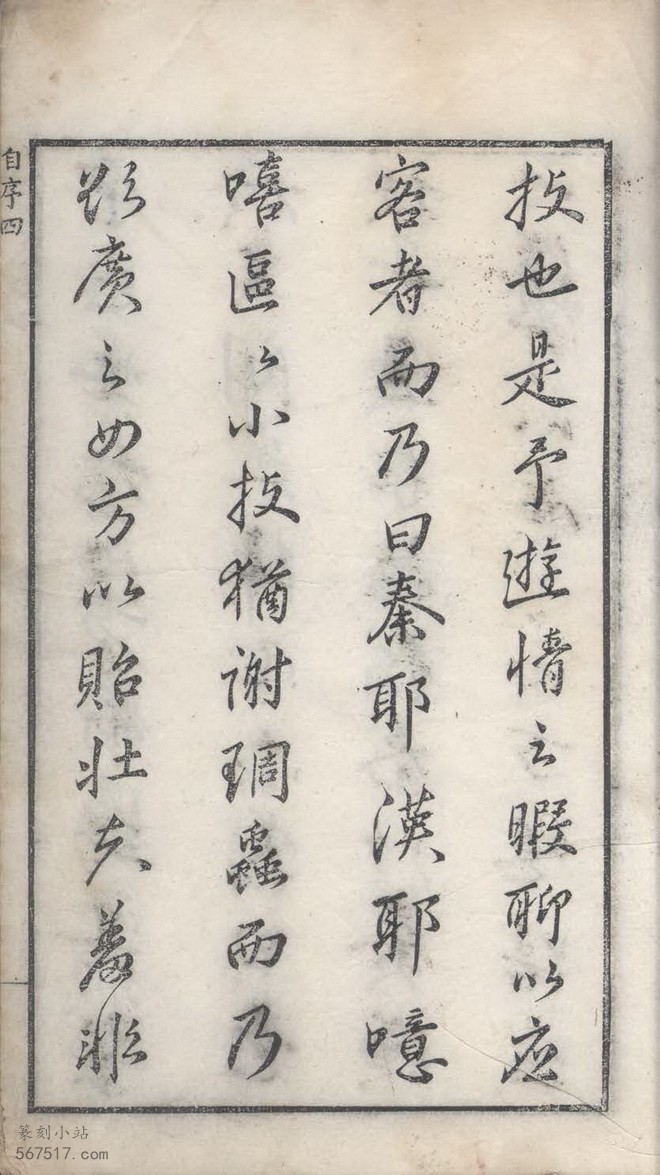 技也是予遊情之暇聊以应
客者而乃曰秦耶漢耶噫
嘻區々小技猶謝琱蟲而乃
欲廣之四方以貽壯夫羞非
自序四
篆刻小站
567517.com